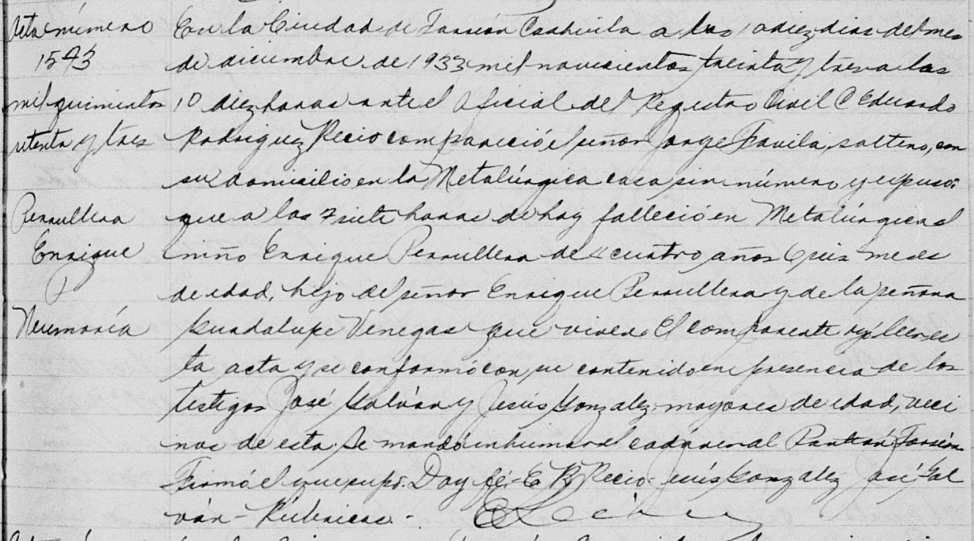 Acta número
1543
mil quinientos
tenta y tres
Perrullera
Enrique
Neumonía
En la Ciudad de Torreón Coahuila a los 10 diez dias del mes
de diciembre de 1933 mil novecientos treinta y tres a las
10 diez horas ante el Oficial del Registro Civil C Eduardo
Rodriguez Recio compareció el señor Jorge Favila, soltero, con
su domicilio en la Metalúrgica casa sin número y expuso:
que a las 7 siete horas de hoy falleció en Metalúrgica el
niño Enrique Perrullera de 4 cuatro años 6 seis meses
de edad, hijo del señor Enrique Perrullera y de la señora
Guadalupe Venegas que viven. El compareciente oyó leer es
ta acta y se conformó con su contenido en presencia de los
testigos José Galván y Jesús Gonzalez mayores de edad, veci
nos de esta. Se mandó inhumar el cadaver al Panteón Torreón
Firmó el que supo. Doy fé - E R Recio - Jesús Gonzalez José Gal
ván - Rubricas -